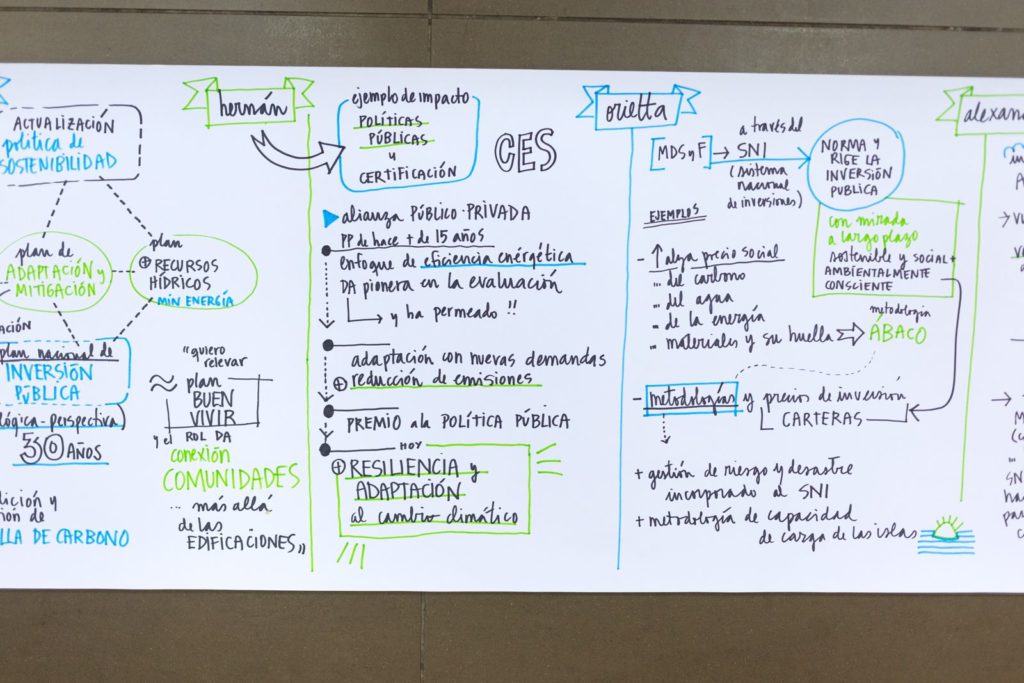 ACTUALIZACIÓN
política de
SOSTENIBILIDAD
plan de
ADAPTACIÓN y
MITIGACIÓN
plan
⊕ RECURSOS
HÍDRICOS
MIN ENERGÍA
plan nacional de
INVERSIÓN
PÚBLICA
perspectiva)
30 AÑOS
LLA DE CARBONO
"quiero
relevar
≈ plan
BUEN
VIVIR
y el ROL DA
conexión
COMUNIDADES
... más allá
de las
EDIFICACIONES"
hernán
ejemplo de impacto
POLÍTICAS
PÚBLICAS
y
CERTIFICACIÓN
CES
alianza PÚBLICO·PRIVADA
PP de hace + de 15 años
enfoque de eficiencia energética
DA pionera en la evaluación
→ y ha permeado !!
adaptación con nuevas demandas
⊕ reducción de emisiones
PREMIO a la POLÍTICA PÚBLICA
HOY
⊕ RESILIENCIA y
ADAPTACIÓN
al cambio climático
orietta
[MDS y F] → SNI
a través del
(sistema
nacional
de inversiones)
NORMA Y
RIGE LA
INVERSIÓN
PUBLICA
con mirada
a largo plazo
sostenible y social +
AMBIENTALMENTE
CONSCIENTE
EJEMPLOS
- ↑ alza precio social
... del carbono
... del agua
... de la energía
... materiales y su huella ⇒
metodología
ÁBACO
- metodologías y precios de inversión
CARTERAS
+ gestión de riesgo y desastre
incorporado al SNI
+ metodología de capacidad
de carga de las islas
alexan